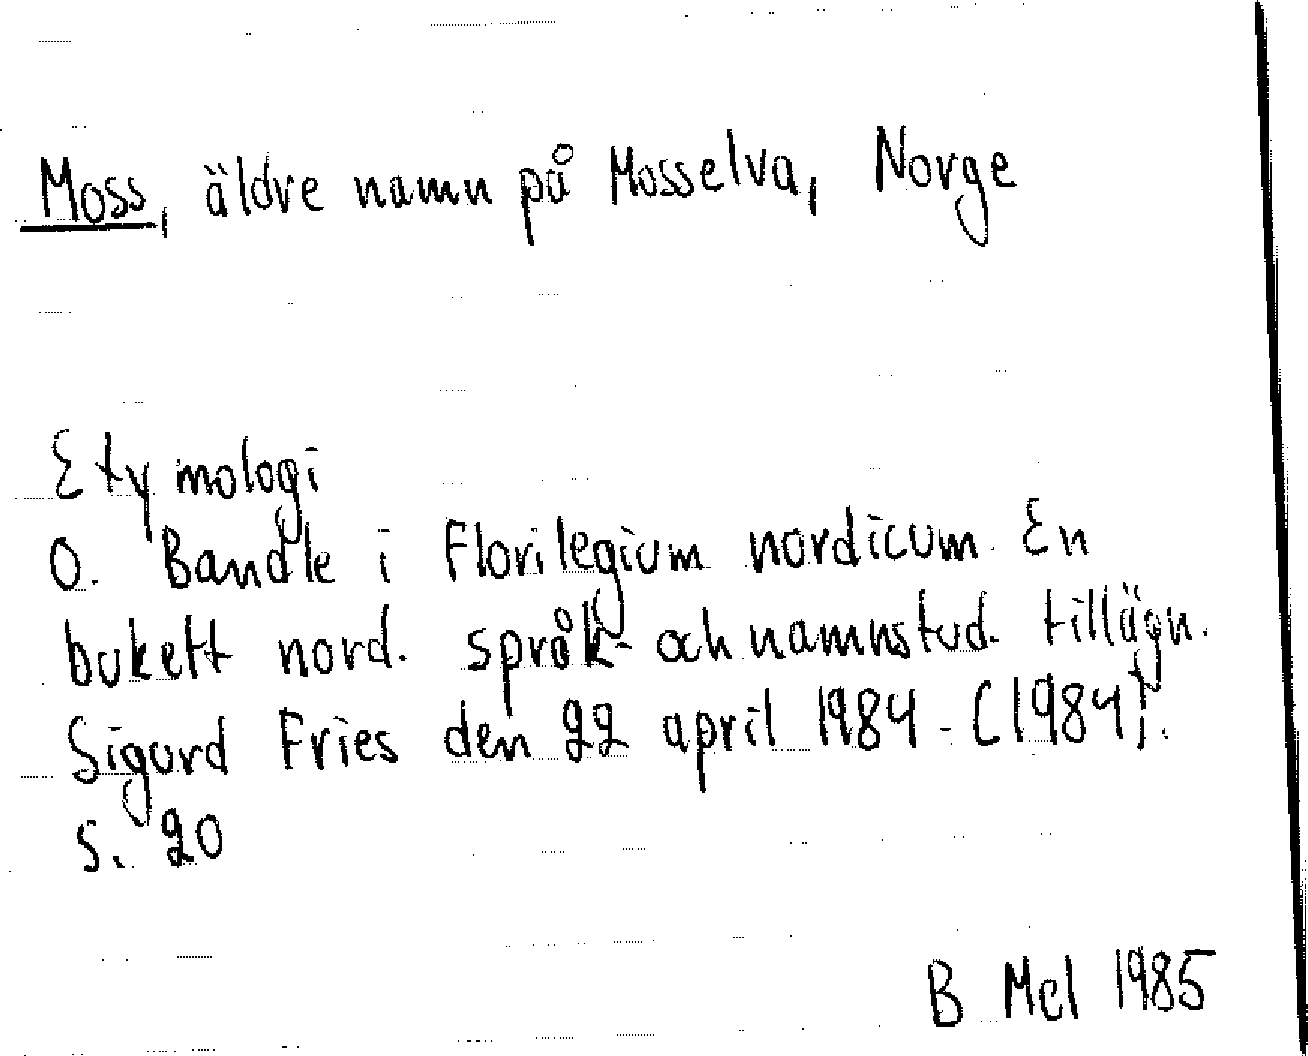 Moss, äldre namn på Mosselva, Norge
Etymologi
O. Bandle i Florilegium nordicum. En
bukett nord. språk- och namnstud. tillägn.
Sigurd Fries den 22 april 1984. (1984).
S. 20
B Mel 1985